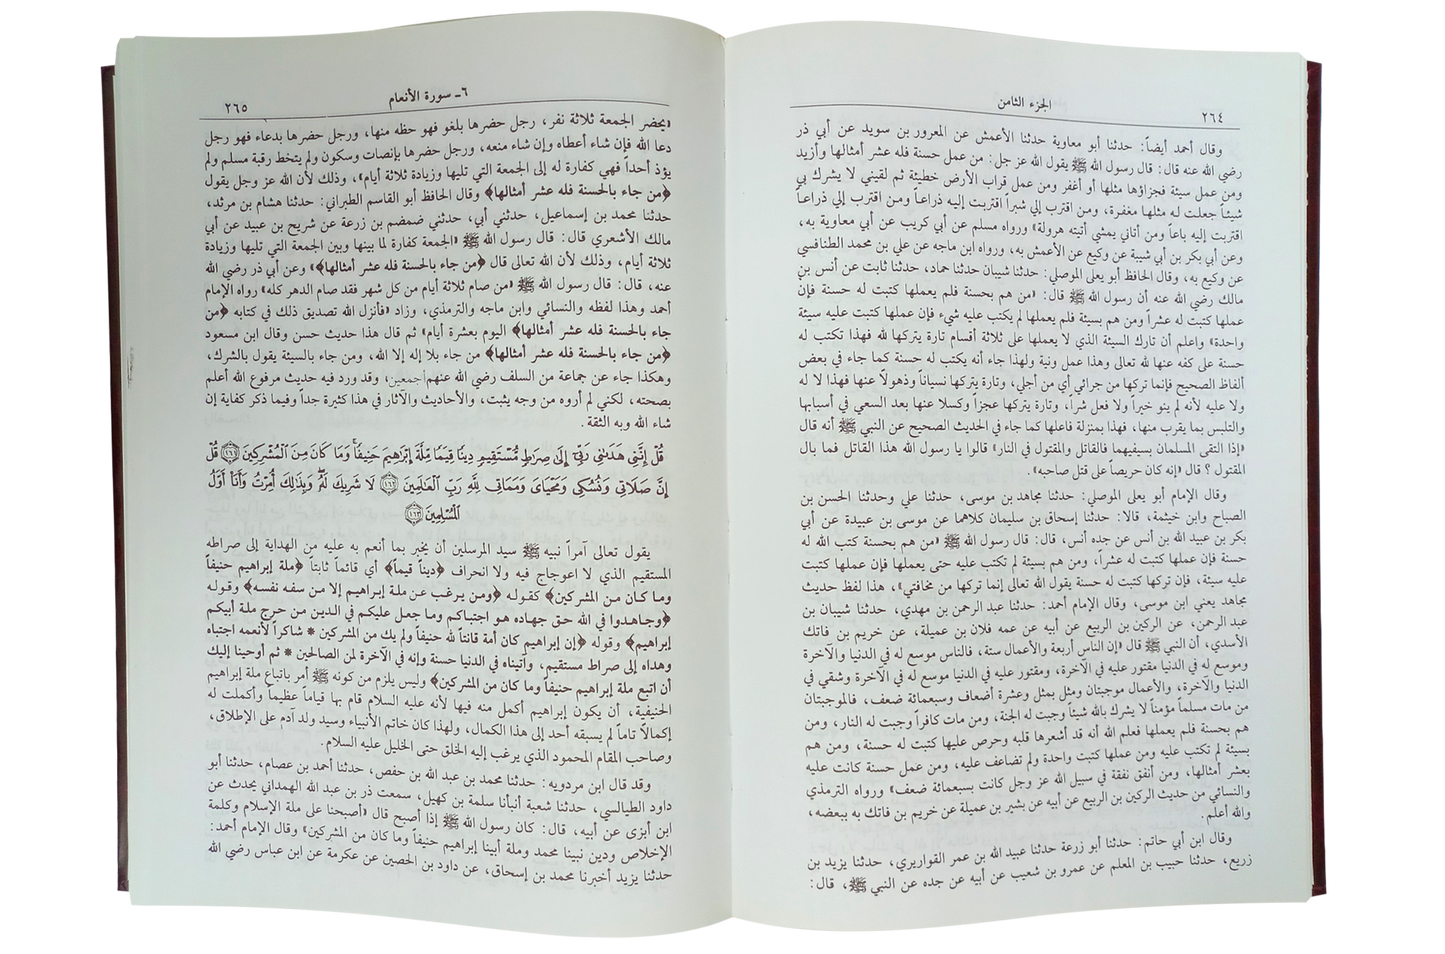 ٢٦٤
الجزء الثامن
وقال أحمد أيضاً: حدثنا أبو معاوية حدثنا الأعمش عن المعرور بن سويد عن أبي ذر
رضي الله عنه قال: قال رسول الله ﷺ يقول الله عز جل: من عمل حسنة فله عشر أمثالها وأزيد
ومن عمل سيئة فجزاؤها مثلها أو أغفر ومن عمل قراب الأرض خطيئة ثم لقيني لا يشرك بي
شيئاً جعلت له مثلها مغفرة، ومن اقترب إلي شبراً اقتربت إليه ذراعاً ومن اقترب إلي ذراعاً
اقتربت إليه باعاً ومن أتاني يمشي أتيته هرولة» ورواه مسلم عن أبي كريب عن أبي معاوية به،
وعن أبي بكر بن أبي شيبة عن وكيع عن الأعمش به، ورواه ابن ماجه عن علي بن محمد الطنافسي
عن وكيع به، وقال الحافظ أبو يعلى الموصلي: حدثنا شيبان حدثنا حماد، حدثنا ثابت عن أنس بن
مالك رضي الله عنه أن رسول الله ﷺ قال: «من هم بحسنة فلم يعملها كتبت له حسنة فإن
عملها كتبت له عشراً ومن هم بسيئة فلم يعملها لم يكتب عليه شيء فإن عملها كتبت عليه سيئة
واحدة» واعلم أن تارك السيئة الذي لا يعملها على ثلاثة أقسام تارة يتركها لله فهذا تكتب له
حسنة على كفه عنها لله تعالى وهذا عمل ونية ولهذا جاء أنه يكتب له حسنة كما جاء في بعض
ألفاظ الصحيح فإنما تركها من جرائي أي من أجلي، وتارة يتركها نسياناً وذهولاً عنها فهذا لا له
ولا عليه لأنه لم ينو خيراً ولا فعل شراً، وتارة يتركها عجزاً وكسلا عنها بعد السعي في أسبابها
والتلبس بما يقرب منها، فهذا بمنزلة فاعلها كما جاء في الحديث الصحيح عن النبي ﷺ أنه قال
«إذا التقى المسلمان بسيفيهما فالقاتل والمقتول في النار» قالوا يا رسول الله هذا القاتل فما بال
المقتول ؟ قال «إنه كان حريصاً على قتل صاحبه».
وقال الإمام أبو يعلى الموصلي: حدثنا مجاهد بن موسى، حدثنا علي وحدثنا الحسن بن
الصباح وابن خيثمة، قالا: حدثنا إسحاق بن سليمان كلاهما عن موسى بن عبيدة عن أبي
بكر بن عبيد الله بن أنس عن جده أنس، قال: قال رسول الله ﷺ «من هم بحسنة كتب الله له
حسنة فإن عملها كتبت له عشراً، ومن هم بسيئة لم تكتب عليه حتى يعملها فإن عملها كتبت
عليه سيئة، فإن تركها كتبت له حسنة يقول الله تعالى إنما تركها من مخافتي»، هذا لفظ حديث
مجاهد يعني ابن موسى، وقال الإمام أحمد: حدثنا عبد الرحمن بن مهدي، حدثنا شيبان بن
عبد الرحمن، عن الركين بن الربيع عن أبيه عن عمه فلان بن عميلة، عن خريم بن فاتك
الأسدي، أن النبي ﷺ قال «إن الناس أربعة والأعمال ستة، فالناس موسع له في الدنيا والآخرة
وموسع له في الدنيا مقتور عليه في الآخرة، ومقتور عليه في الدنيا موسع له في الآخرة وشقي في
الدنيا والآخرة، والأعمال موجبتان ومثل بمثل وعشرة أضعاف وسبعمائة ضعف، فالموجبتان
من مات مسلماً مؤمناً لا يشرك بالله شيئاً وجبت له الجنة، ومن مات كافراً وجبت له النار، ومن
هم بحسنة فلم يعملها فعلم الله أنه قد أشعرها قلبه وحرص عليها كتبت له حسنة، ومن هم
بسيئة لم تكتب عليه ومن عملها كتبت واحدة ولم تضاعف عليه، ومن عمل حسنة كانت عليه
بعشر أمثالها، ومن أنفق نفقة في سبيل الله عز وجل كانت بسبعمائة ضعف» ورواه الترمذي
والنسائي من حديث الركين بن الربيع عن أبيه عن بشير بن عميلة عن خريم بن فاتك به ببعضه،
والله أعلم.
وقال ابن أبي حاتم: حدثنا أبو زرعة حدثنا عبيد الله بن عمر القواريري، حدثنا يزيد بن
زريع، حدثنا حبيب بن المعلم عن عمرو بن شعيب عن أبيه عن جده عن النبي ﷺ، قال:
٦ـ سورة الأنعام
٢٦٥
«يحضر الجمعة ثلاثة نفر، رجل حضرها بلغو فهو حظه منها، ورجل حضرها بدعاء فهو رجل
دعا الله فإن شاء أعطاه وإن شاء منعه، ورجل حضرها بإنصات وسكون ولم يتخط رقبة مسلم ولم
يؤذ أحداً فهي كفارة له إلى الجمعة التي تليها وزيادة ثلاثة أيام»، وذلك لأن الله عز وجل يقول
﴿من جاء بالحسنة فله عشر أمثالها﴾ وقال الحافظ أبو القاسم الطبراني: حدثنا هشام بن مرثد،
حدثنا محمد بن إسماعيل، حدثني أبي، حدثني ضمضم بن زرعة عن شريح بن عبيد عن أبي
مالك الأشعري قال: قال رسول الله ﷺ «الجمعة كفارة لما بينها وبين الجمعة التي تليها وزيادة
ثلاثة أيام، وذلك لأن الله تعالى قال ﴿من جاء بالحسنة فله عشر أمثالها﴾» وعن أبي ذر رضي الله
عنه، قال: قال رسول الله ﷺ «من صام ثلاثة أيام من كل شهر فقد صام الدهر كله» رواه الإمام
أحمد وهذا لفظه والنسائي وابن ماجه والترمذي، وزاد «فأنزل الله تصديق ذلك في كتابه ﴿من
جاء بالحسنة فله عشر أمثالها﴾ اليوم بعشرة أيام» ثم قال هذا حديث حسن وقال ابن مسعود
﴿من جاء بالحسنة فله عشر أمثالها﴾ من جاء بلا إله إلا الله، ومن جاء بالسيئة يقول بالشرك،
وهكذا جاء عن جماعة من السلف رضي الله عنهم أجمعين، وقد ورد فيه حديث مرفوع الله أعلم
بصحته، لكني لم أروه من وجه يثبت، والأحاديث والآثار في هذا كثيرة جداً وفيما ذكر كفاية إن
شاء الله وبه الثقة .
قُلْ إِنَّنِي هَدَىٰنِي رَبِّيٓ إِلَىٰ صِرَٰطٍ مُّسْتَقِيمٍ دِينًا قِيَمًا مِّلَّةَ إِبْرَٰهِيمَ حَنِيفًا ۚ وَمَا كَانَ مِنَ ٱلْمُشْرِكِينَ ﴿١٦١﴾ قُلْ
إِنَّ صَلَاتِى وَنُسُكِى وَمَحْيَاىَ وَمَمَاتِى لِلَّهِ رَبِّ ٱلْعَٰلَمِينَ ﴿١٦٢﴾ لَا شَرِيكَ لَهُۥ ۖ وَبِذَٰلِكَ أُمِرْتُ وَأَنَا۠ أَوَّلُ
ٱلْمُسْلِمِينَ ﴿١٦٣﴾
يقول تعالى آمراً نبيه ﷺ سيد المرسلين أن يخبر بما أنعم به عليه من الهداية إلى صراطه
المستقيم الذي لا اعوجاج فيه ولا انحراف ﴿ديناً قيماً﴾ أي قائماً ثابتاً ﴿ملة إبراهيم حنيفاً
وما كان من المشركين﴾ كقوله ﴿ومن يرغب عن ملة إبراهيم إلا من سفه نفسه﴾ وقوله
﴿وجاهدوا في الله حق جهاده هو اجتباكم وما جعل عليكم في الدين من حرج ملة أبيكم
إبراهيم﴾ وقوله ﴿إن إبراهيم كان أمة قانتاً لله حنيفاً ولم يك من المشركين * شاكراً لأنعمه اجتباه
وهداه إلى صراط مستقيم، وآتيناه في الدنيا حسنة وإنه في الآخرة لمن الصالحين * ثم أوحينا إليك
أن اتبع ملة إبراهيم حنيفاً وما كان من المشركين﴾ وليس يلزم من كونه ﷺ أمر باتباع ملة إبراهيم
الحنيفية، أن يكون إبراهيم أكمل منه فيها لأنه عليه السلام قام بها قياماً عظيماً وأكملت له
إكمالاً تاماً لم يسبقه أحد إلى هذا الكمال، ولهذا كان خاتم الأنبياء وسيد ولد آدم على الإطلاق،
وصاحب المقام المحمود الذي يرغب إليه الخلق حتى الخليل عليه السلام.
وقد قال ابن مردويه: حدثنا محمد بن عبد الله بن حفص، حدثنا أحمد بن عصام، حدثنا أبو
داود الطيالسي، حدثنا شعبة أنبأنا سلمة بن كهيل، سمعت ذر بن عبد الله الهمداني يحدث عن
ابن أبزى عن أبيه، قال: كان رسول الله ﷺ إذا أصبح قال «أصبحنا على ملة الإسلام وكلمة
الإخلاص ودين نبينا محمد وملة أبينا إبراهيم حنيفاً وما كان من المشركين» وقال الإمام أحمد:
حدثنا يزيد أخبرنا محمد بن إسحاق، عن داود بن الحصين عن عكرمة عن ابن عباس رضي الله